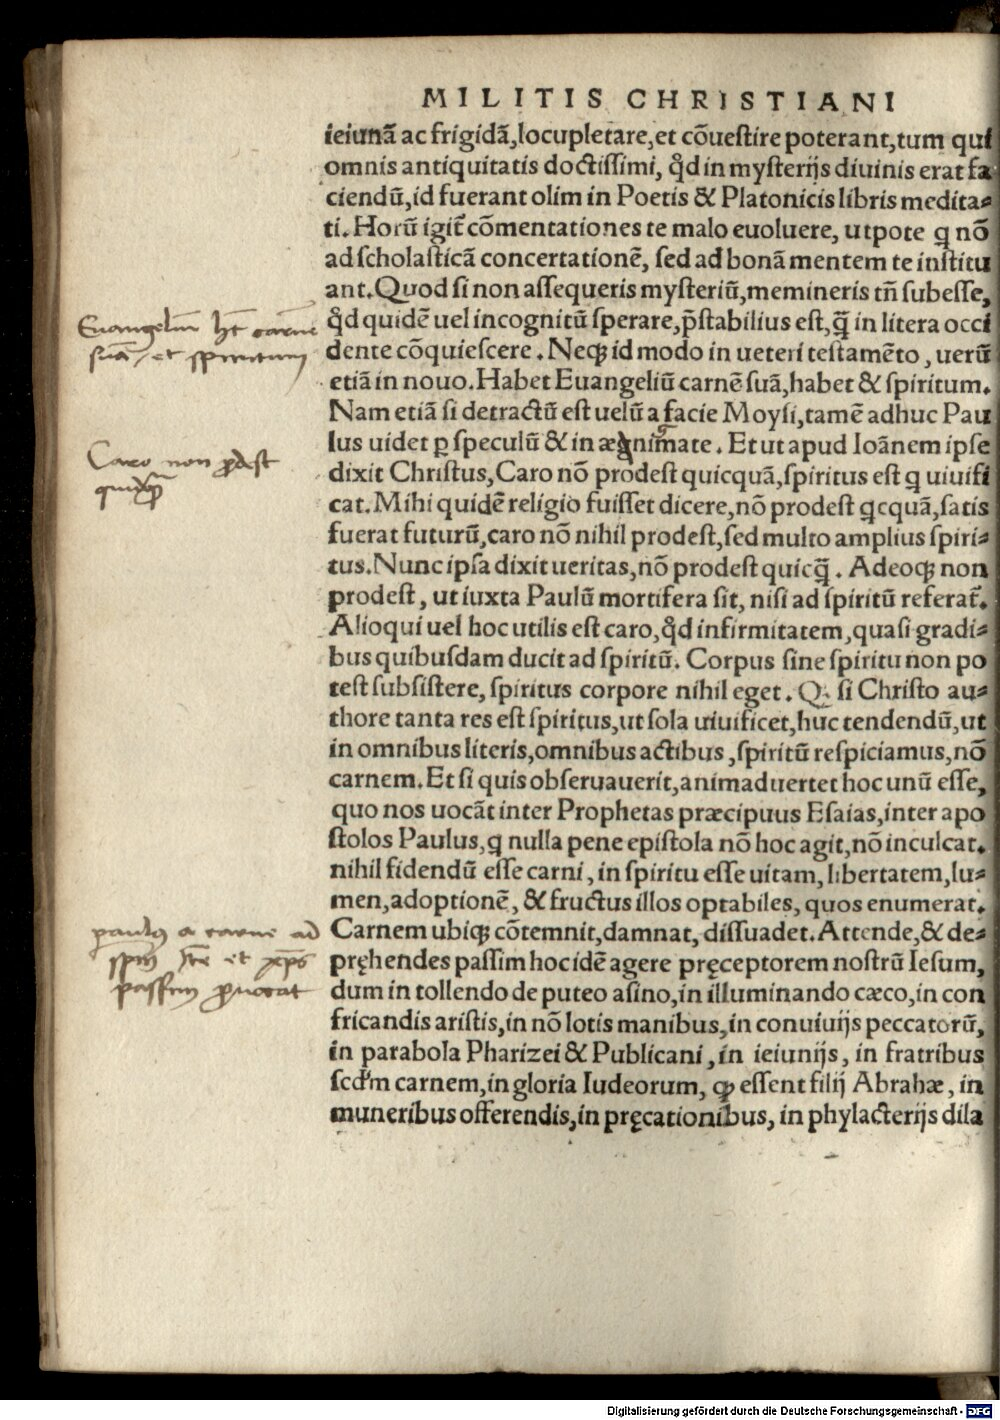 MILITIS CHRISTIANI
ieiunā ac frigidā, locupletare, et cōuestire poterant, tum qui
omnis antiquitatis doctissimi, qd̄ in mysterijs diuinis erat fa
ciendū, id fuerant olim in Poetis & Platonicis libris medita-
ti. Horū igit̃ cōmentationes te malo euoluere, utpote q nō
ad scholasticā concertationē, sed ad bonā mentem te institu
ant. Quod si non assequeris mysteriū, memineris tn̄ subesse,
Euangeliū h̄t carnē
qd̄ quidē uel incognitū sperare, p̄stabilius est, q̄̃ in litera occi
suā, et spiritum
dente cōquiescere. Neqꝫ id modo in ueteri testamēto, uerū
etiā in nouo. Habet Euangeliū carnē suā, habet & spiritum.
Nam etiā si detractū est uelū a facie Moysi, tamē adhuc Pau
lus uidet ꝑ speculū & in ænigmate. Et ut apud Ioānem ipse
Caro non ꝓdest
dixit Christus, Caro nō prodest quicquā, spiritus est q uiuifi
cat. Mihi quidē religio fuisset dicere, nō prodest qcquā, satis
fuerat futurū, caro nō nihil prodest, sed multo amplius spiri-
tus. Nunc ipsa dixit ueritas, nō prodest quicq̄̃. Adeoqꝫ non
prodest, ut iuxta Paulū mortifera sit, nisi ad spiritū referat̃.
Alioqui uel hoc utilis est caro, qd̄ infirmitatem, quasi gradi-
bus quibusdam ducit ad spiritū. Corpus sine spiritu non po
test subsistere, spiritus corpore nihil eget. Q; si Christo au-
thore tanta res est spiritus, ut sola uiuificet, huc tendendū, ut
in omnibus literis, omnibus actibus, spiritū respiciamus, nō
carnem. Et si quis obseruauerit, animaduertet hoc unū esse,
quo nos uocāt inter Prophetas præcipuus Esaias, inter apo
stolos Paulus, q nulla pene epistola nō hoc agit, nō inculcat.
nihil fidendū esse carni, in spiritu esse uitam, libertatem, lu-
men, adoptionē, & fructus illos optabiles, quos enumerat.
paulꝰ a carne ad
Carnem ubiqꝫ cōtemnit, damnat, dissuadet. Attende, & de-
spm̄ et xp̄s
pręhendes passim hoc idē agere pręceptorem nostrū Iesum,
passim ꝓuocat
dum in tollendo de puteo asino, in illuminando cæco, in con
fricandis aristis, in nō lotis manibus, in conuiuijs peccatorū,
in parabola Pharizei & Publicani, in ieiunijs, in fratribus
scd̄m carnem, in gloria Iudeorum, ꝙ essent filij Abrahæ, in
muneribus offerendis, in pręcationibus, in phylacterijs dila
Digitalisierung gefördert durch die Deutsche Forschungsgemeinschaft - DFG